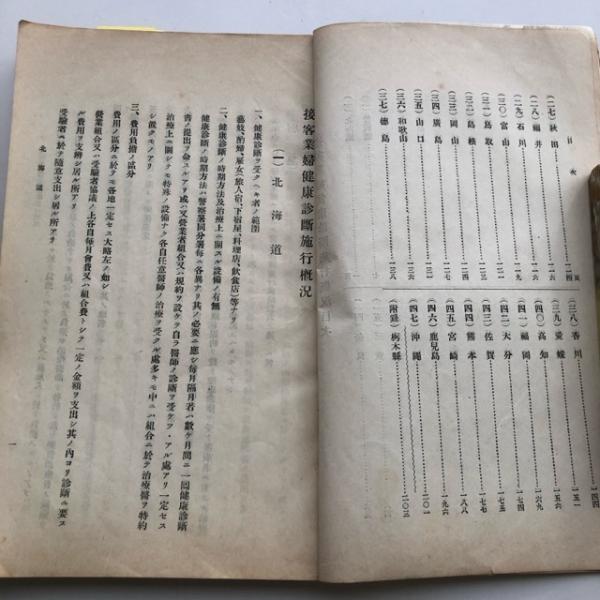 目次
(二七) 秋田
(二八) 福井
(二九) 石川
(三〇) 富山
(三一) 鳥取
(三二) 島根
(三三) 岡山
(三四) 廣島
(三五) 山口
(三六) 和歌山
(三七) 徳島 一三八
(三八) 香川 一四四
(三九) 愛媛 一五一
(四〇) 高知 一五六
(四一) 福岡 一六九
(四二) 大分 一七四
(四三) 佐賀 一七五
(四四) 熊本 一七七
(四五) 宮崎 一八八
(四六) 鹿兒島 一九六
(四七) 沖繩 二〇一
(附錄) 栃木縣 二〇三
接客業婦健康診斷施行概況
(一) 北海道
一、健康診斷ヲ受クヘキ者ノ範圍
藝妓、酌婦、雇女(旅人宿、下宿屋、料理店、飮食店)等ナリ
二、健康診斷ノ時期方法及治療上ニ關スル設備ノ有無
健康診斷ノ時期方法ハ警察署同分署每ニ各異ナリ其ノ必要ニ應シ每月隔月若ハ數ケ月間ニ一囘健康診斷
書ノ提出ヲ命スルアリ或ハ又營業者組合又ハ規約ヲ設ケ自ラ醫師ノ診斷ヲ受ケツヽアル處アリ一定セス
治療上ニ關シテモ特殊ノ設備ナク各自任意醫師ノ治療ヲ受クル處多キモ中ニハ組合ニ於テ治療醫ヲ特約
シ置クモノアリ
三、費用負擔ノ區分
費用ノ區分ニ於テモ各地一定セス大略左ノ如シ
營業組合又ハ受驗者協議ノ上各自每月會費又ハ組合費トシテ一定ノ金額ヲ支出シ其ノ內ヨリ診斷ニ要ス
ル費用ヲ支辨シ居ル所アリ
受驗者ニ於テ隨意支出シ居ル所アリ
北海道
一